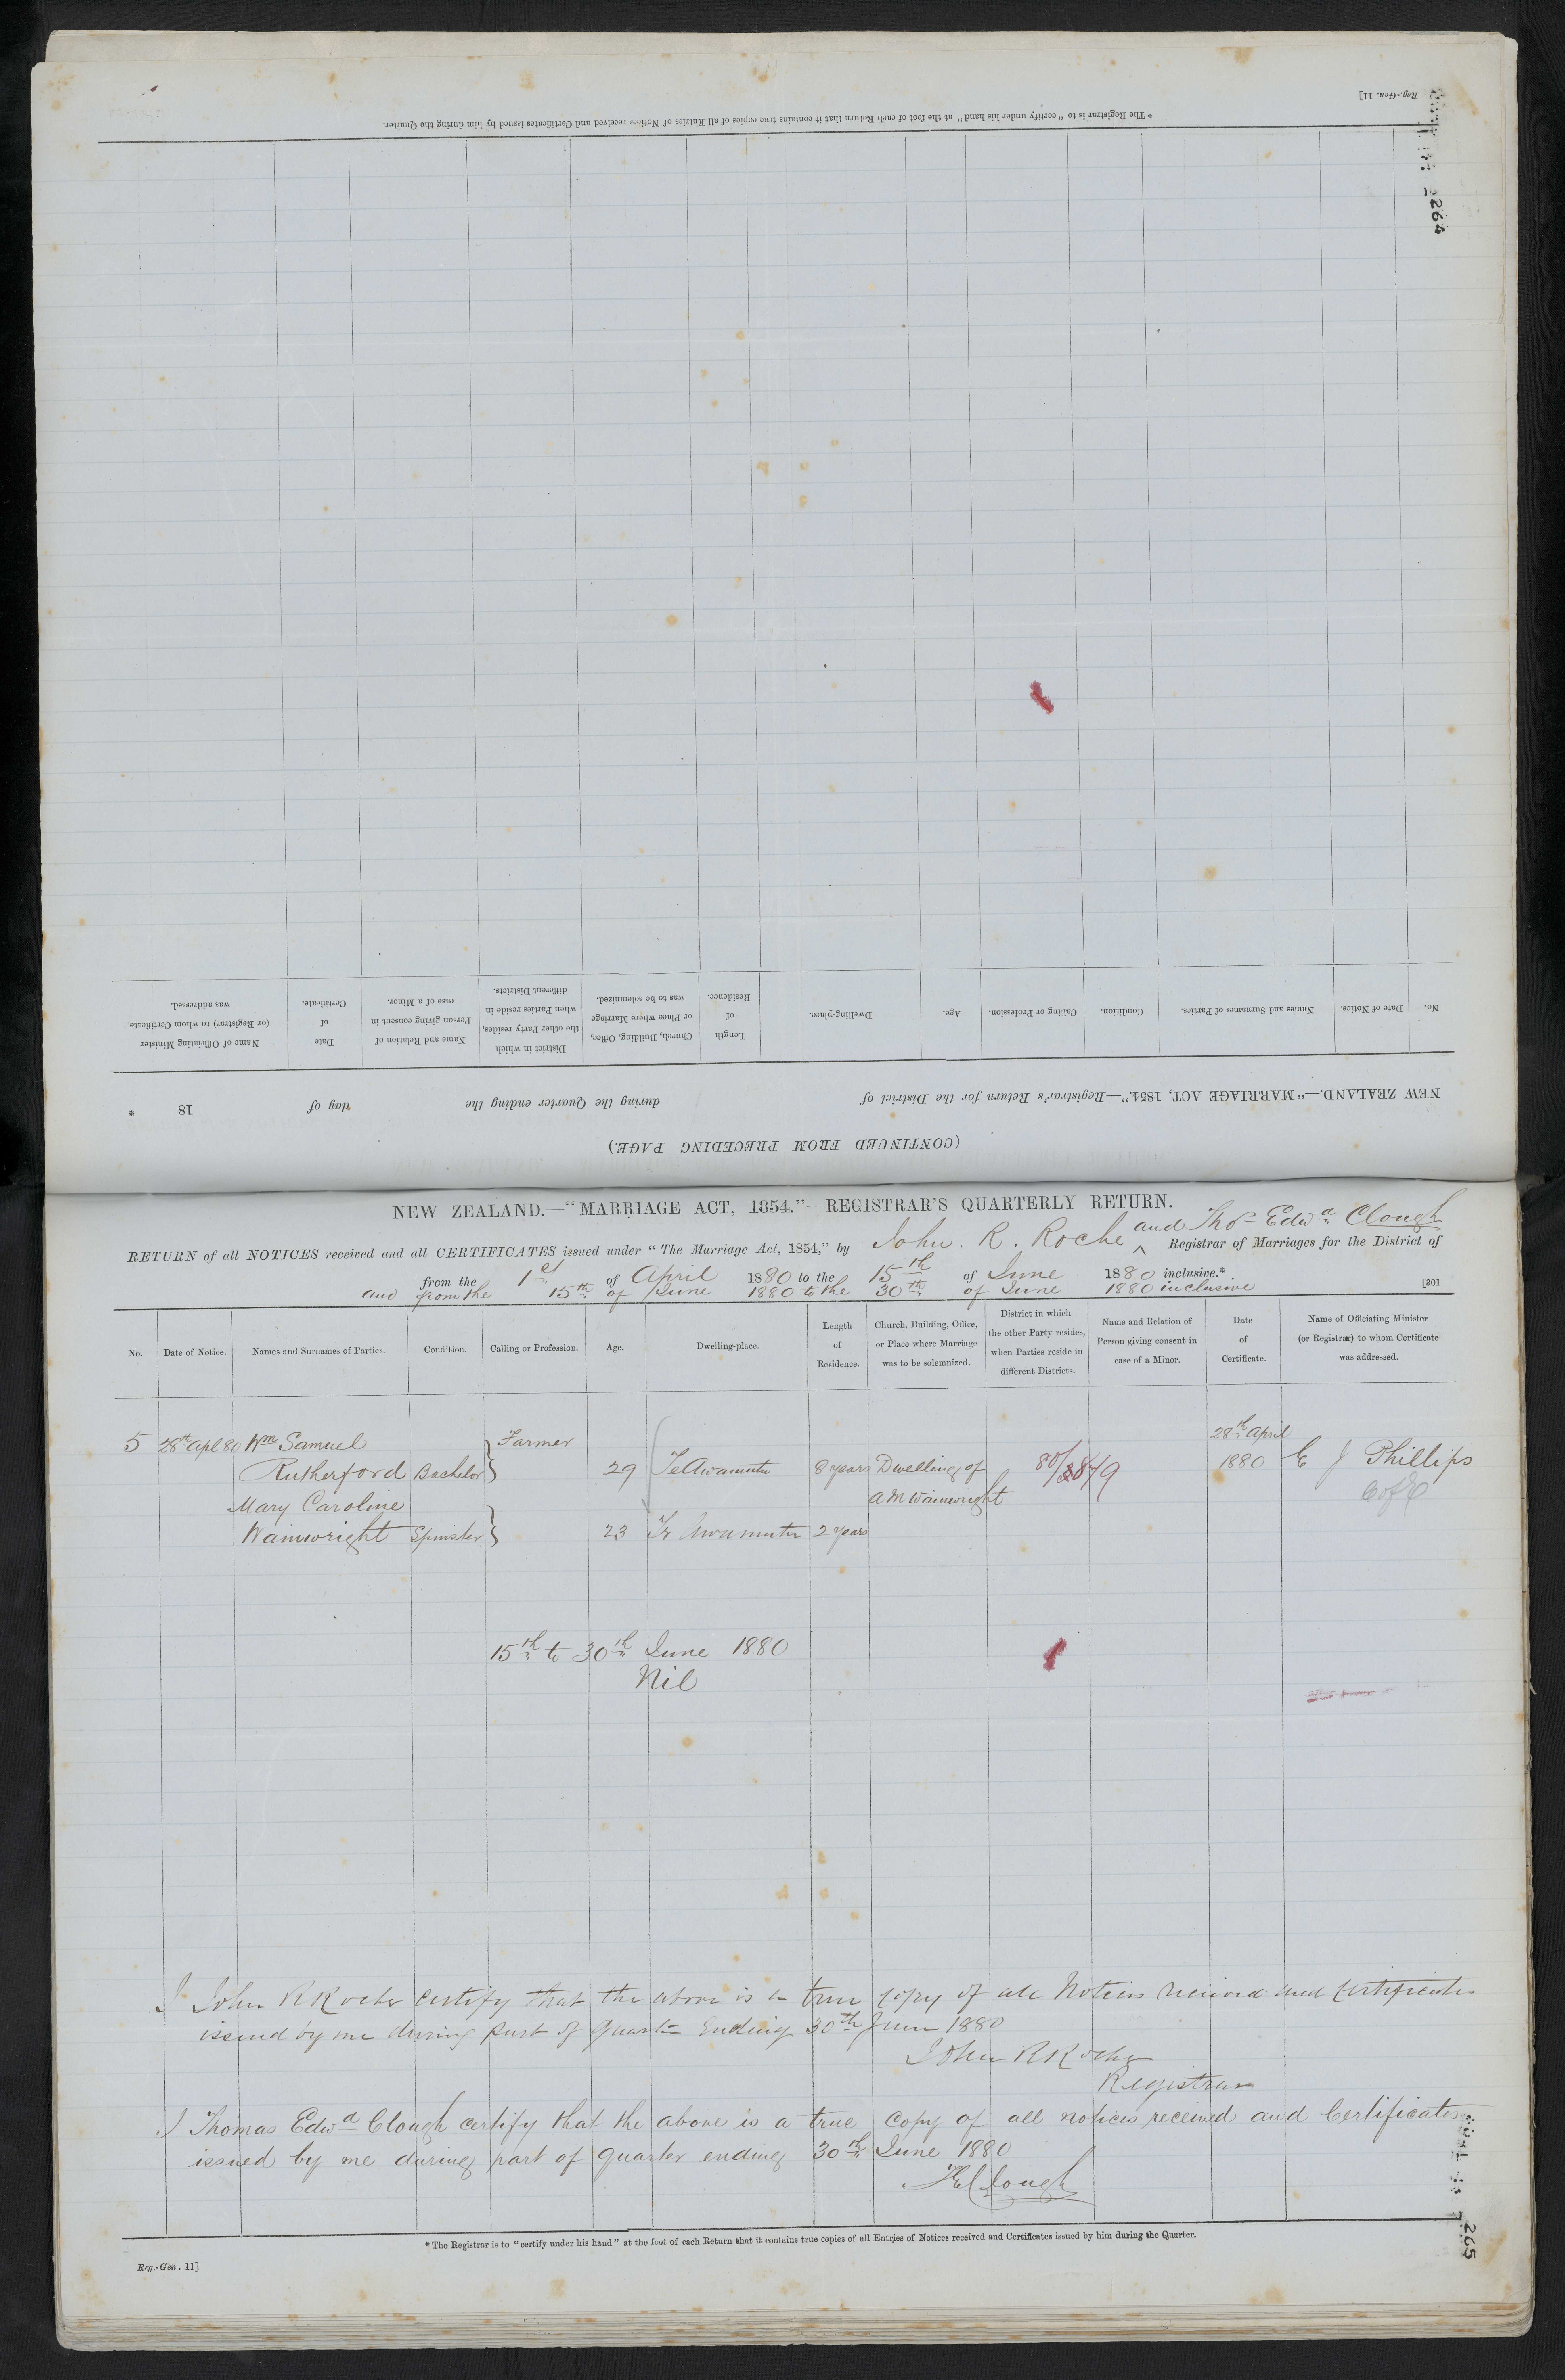 Reg.-Gen. 11]
264
* The Registrar is to "certify under his hand" at the foot of each Return that it contains true copies of all Entries of Notices received and Certificates issued by him during the Quarter.
(CONTINUED FROM PRECEDING PAGE.)
NEW ZEALAND.—"MARRIAGE ACT, 1854."—Registrar's Return for the District of during the Quarter ending the day of 18 *
No.
Date of Notice.
Names and Surnames of Parties.
Condition.
Calling or Profession.
Age.
Dwelling-place.
Length
of
Residence.
Church, Building, Office,
or Place where Marriage
was to be solemnized.
District in which
the other Party resides,
when Parties reside in
different Districts.
Name and Relation of
Person giving consent in
case of a Minor.
Date
of
Certificate.
Name of Officiating Minister
(or Registrar) to whom Certificate
was addressed.
NEW ZEALAND.—"MARRIAGE ACT, 1854."—REGISTRAR'S QUARTERLY RETURN.
RETURN of all NOTICES received and all CERTIFICATES issued under "The Marriage Act, 1854," by John. R. Roche and Thos Edwd Clough Registrar of Marriages for the District of
from the 1st of April 1880 to the 15th of June 1880 inclusive.*
and from the 15th of June 1880 to the 30th of June 1880 inclusive
[301
No.
Date of Notice.
Names and Surnames of Parties.
Condition.
Calling or Profession.
Age.
Dwelling-place.
Length
of
Residence.
Church, Building, Office,
or Place where Marriage
was to be solemnized.
District in which
the other Party resides,
when Parties reside in
different Districts.
Name and Relation of
Person giving consent in
case of a Minor.
Date
of
Certificate.
Name of Officiating Minister
(or Registrar) to whom Certificate
was addressed.
5 28th Apl 80 Wm Samuel Farmer 28th April
Rutherford Bachelor 29 Te Awamutu 8 years Dwelling of 1880 E J Phillips
Mary Caroline A M Wainwright C of E
Wainwright Spinster 23 Te Awamutu 2 years
15th to 30th June 1880
Nil
I John R Roche certify that the above is a true copy of all Notices received and Certificates
issued by me during part of Quarter Ending 30th June 1880
John R Roche
Registrar
I Thomas Edwd Clough certify that the above is a true copy of all notices received and Certificates
issued by me during part of quarter ending 30th June 1880
T E Clough
* The Registrar is to "certify under his hand" at the foot of each Return that it contains true copies of all Entries of Notices received and Certificates issued by him during the Quarter.
Reg.-Gen. 11]
265